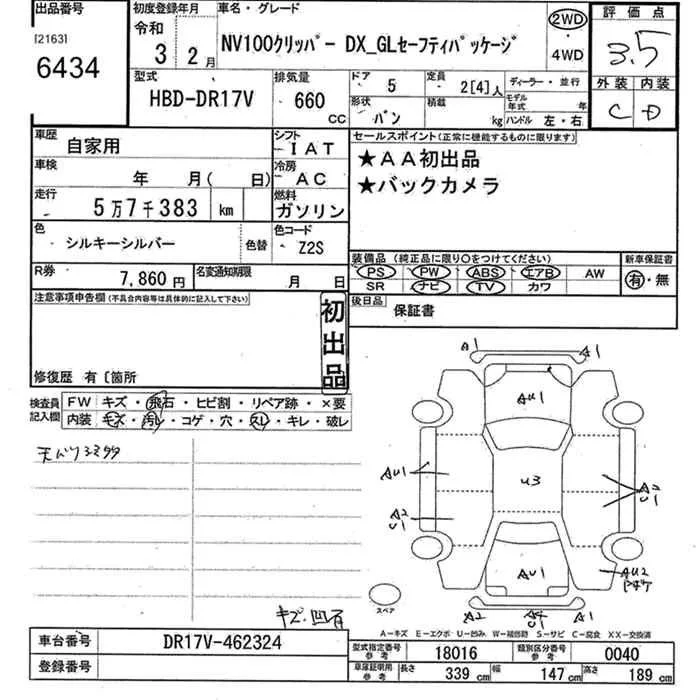 出品番号 初度登録年月 車名・グレード 評価点
[2163] 令和 3 2月 NV100クリッパー DX_GLセーフティパッケージ 2WD・4WD 3.5
6434
型式 HBD-DR17V 排気量 660 CC ドア 5 定員 2[4]人 ディーラー・並行 外装 内装
形状 バン 積載 kg モデル年式 年 ハンドル 左・右 C D
車歴 自家用 シフト IAT セールスポイント(正常に機能するものに限ります)
車検 年 月( 日) 冷房 AC ★AA初出品
走行 5万7千383 km 燃料 ガソリン ★バックカメラ
色 シルキーシルバー 色替 色コード Z2S
装備品(純正品に限り○をつけてください) 新車保証書
R券 7,860円 名変通知期限 月 日 PS PW ABS エアB AW 有・無
SR ナビ TV カワ
注意事項申告欄(不具合内容等は具体的に記入して下さい) 初出品 後日品 保証書
修復歴 有〔箇所
検査員記入欄 FW キズ・飛石・ヒビ割・リペア跡・×要
内装 キズ・汚レ・コゲ・穴・スレ・キレ・破レ
A1 A1
AU1
AU1 U3 A2 U1
A2 U1
AU2
AU1
キズ・凹有
スペア A2 U1 A1
A−キズ E−エクボ U−凹み W−補修跡 S−サビ C−腐食 XX−交換済
車台番号 DR17V-462324 型式指定番号 参考 18016 類別区分番号 参考 0040
登録番号 車庫証明用 参考 長さ 339 cm 幅 147 cm 高さ 189 cm